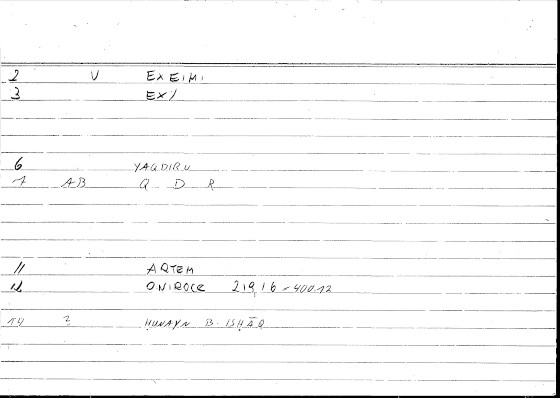 2 V EXEIMI
3 EX/
6 YAQDIRU
7 AB Q D R
11 ARTEM
12 ONIROCR 219,16-400.12
14 2 ḤUNAYN B. ISḤĀQ